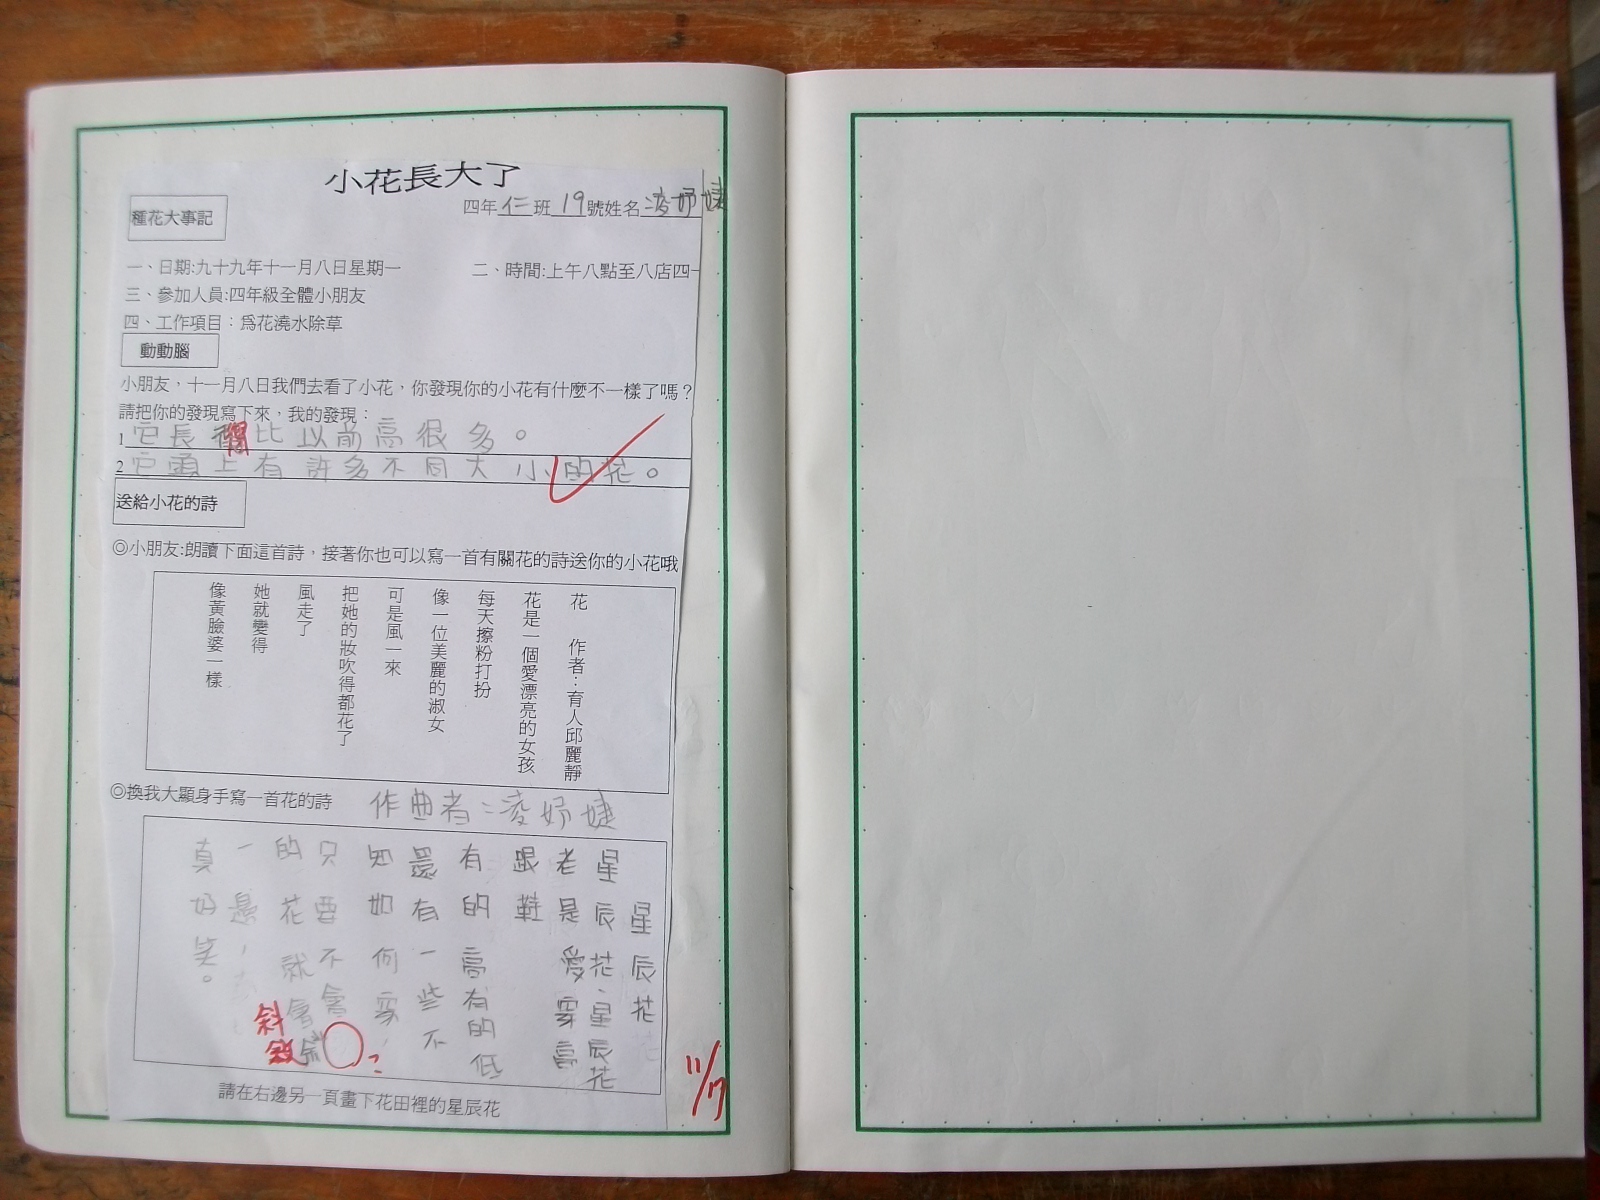 小花長大了
四年仁班19號姓名凌妤婕
種花大事記
一、日期:九十九年十一月八日星期一 二、時間:上午八點至八店四
三、參加人員:四年級全體小朋友
四、工作項目：為花澆水除草
動動腦
小朋友，十一月八日我們去看了小花，你發現你的小花有什麼不一樣了嗎？
請把你的發現寫下來，我的發現：
1 它長得比以前高很多。
2 它頭上有許多不同大小的花。
送給小花的詩
◎小朋友:朗讀下面這首詩，接著你也可以寫一首有關花的詩送你的小花哦
花 作者：育人邱麗靜
花是一個愛漂亮的女孩
每天擦粉打扮
像一位美麗的淑女
可是風一來
把她的妝吹得都花了
風走了
她就變得
像黃臉婆一樣
◎換我大顯身手寫一首花的詩 作曲者：凌妤婕
星辰花
星辰花、星辰花
老是愛穿高
跟鞋
有的高有的低
還有一些不
知如何穿，
只要不會
的花就會斜
一邊，
真好笑。
斜
請在右邊另一頁畫下花田裡的星辰花
11/17